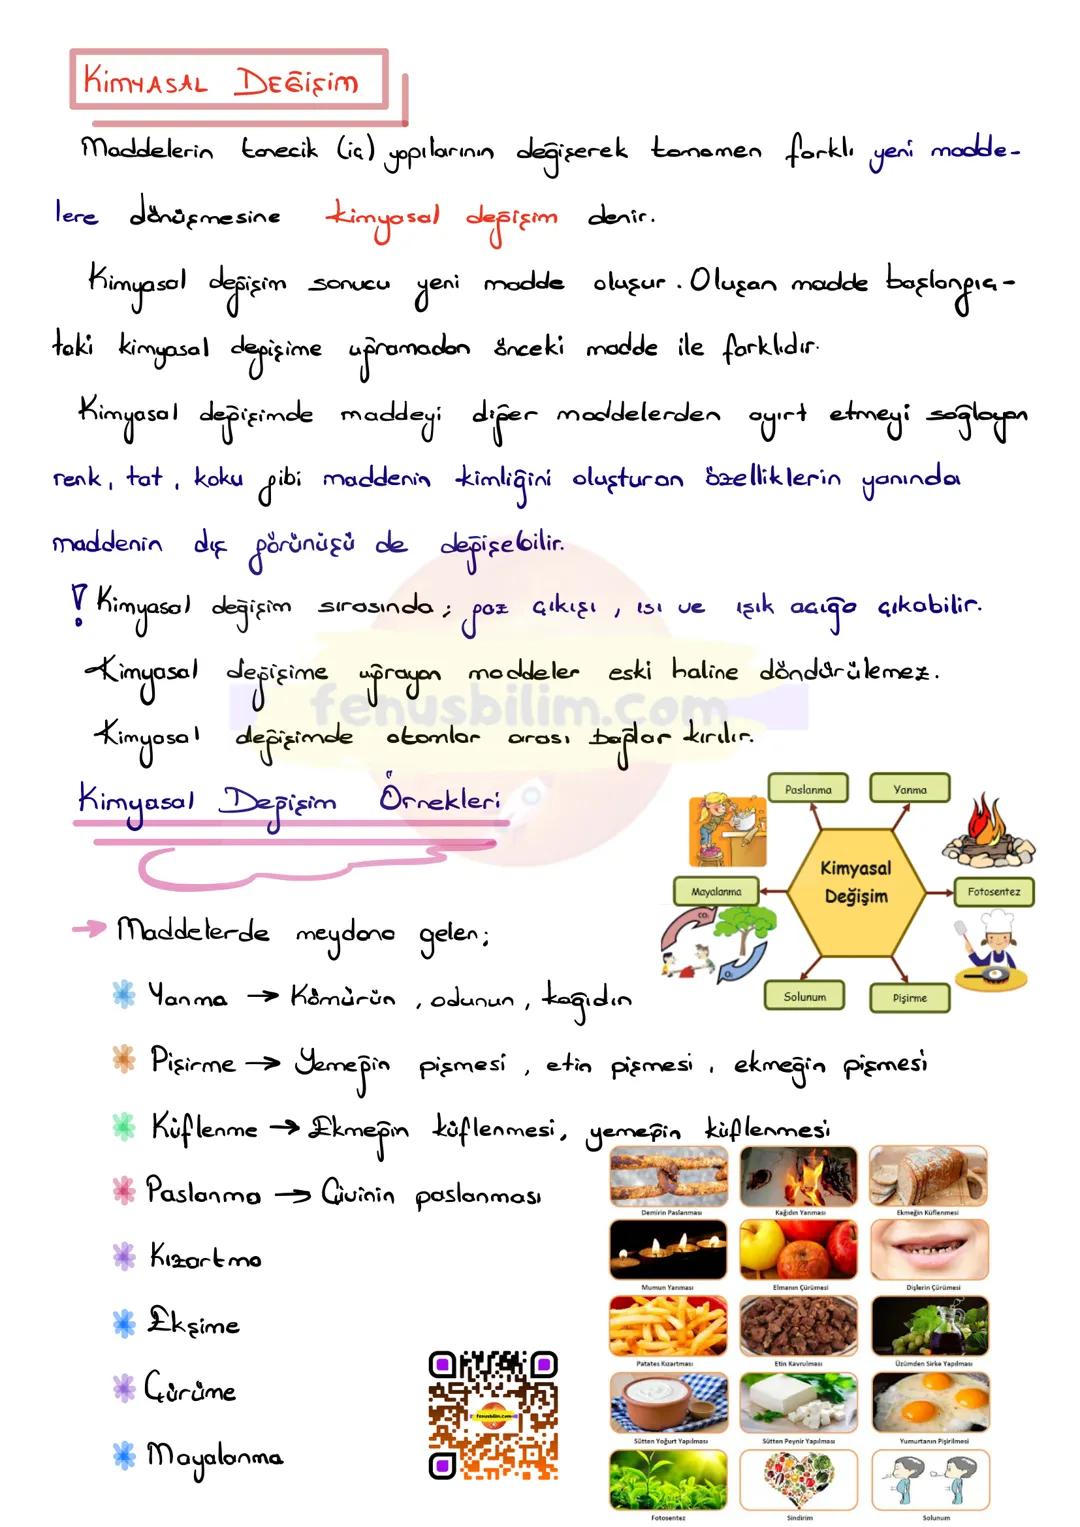 KİMYASAL DEĞİŞİM
Maddelerin tanecik (iç) yapılarının değişerek tamamen farklı yeni madde-
lere dönüşmesine kimyasal değişim denir.
Kimyasal değişim sonucu yeni madde oluşur. Oluşan madde başlangıç-
taki kimyasal değişime uğramadan önceki madde ile farklıdır.
Kimyasal değişimde maddeyi diğer maddelerden ayırt etmeyi sağlayan
renk, tat, koku gibi maddenin kimliğini oluşturan özelliklerin yanında
maddenin dış görünüşü de değişebilir.
! Kimyasal değişim sırasında; gaz çıkışı, ısı ve ışık açığa çıkabilir.
Kimyasal değişime uğrayan maddeler eski haline döndürülemez.
fenusbilim.com
Kimyasal değişimde atomlar arası bağlar kırılır.
Kimyasal Değişim Örnekleri
Paslanma
Yanma
Kimyasal
Değişim
Mayalanma
Fotosentez
CO₂
O₂
Solunum
Pişirme
→ Maddelerde meydana gelen;
Yanma → Kömürün, odunun, kağıdın
Pişirme → Yemeğin pişmesi, etin pişmesi, ekmeğin pişmesi
Küflenme → Ekmeğin küflenmesi, yemeğin küflenmesi
Paslanma → Çivinin paslanması
Kızartma
Ekşime
Çürüme
Mayalanma
fenusbilim.com
Demirin Paslanması
Kağıdın Yanması
Ekmeğin Küflenmesi
Mumun Yanması
Elmanın Çürümesi
Dişlerin Çürümesi
Patates Kızartması
Etin Kavrulması
Üzümden Sirke Yapılması
Sütten Yoğurt Yapılması
Sütten Peynir Yapılması
Yumurtanın Pişirilmesi
Fotosentez
Sindirim
Solunum